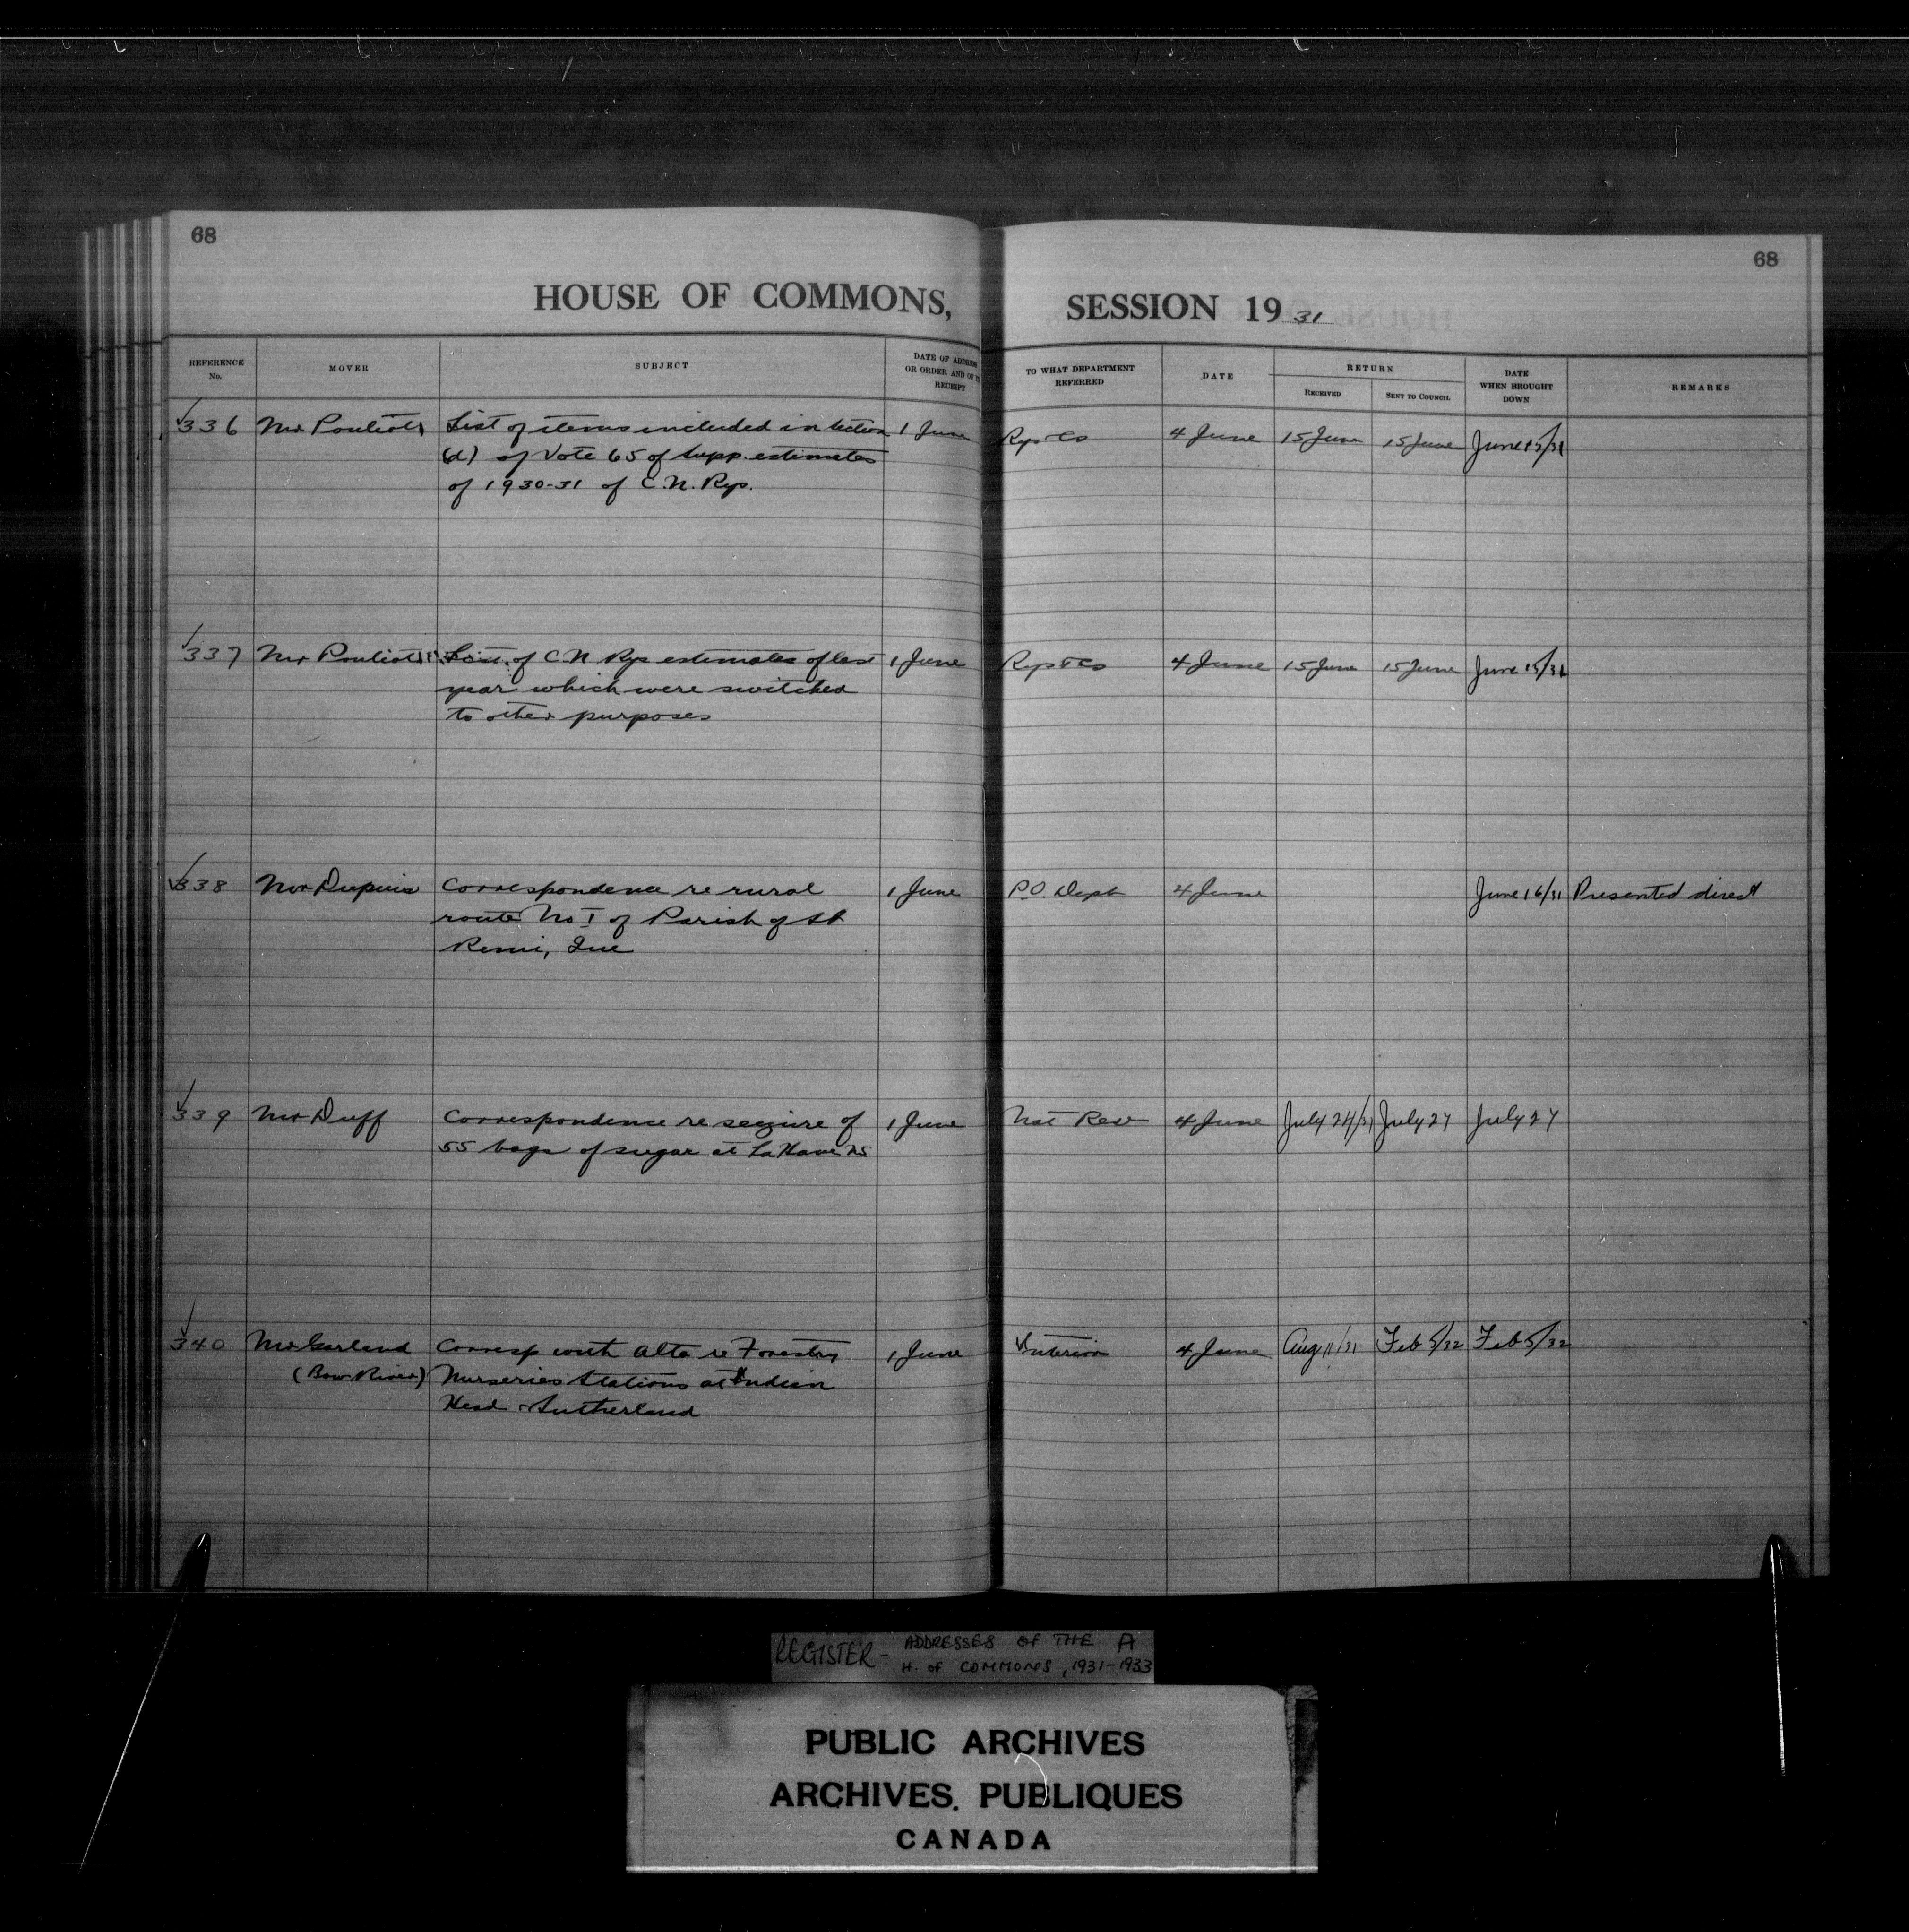 68
68
HOUSE OF COMMONS, SESSION 19 31
REFERENCE No. MOVER SUBJECT DATE OF ADDRESS OR ORDER AND OF ITS RECEIPT TO WHAT DEPARTMENT REFERRED DATE RETURN RECEIVED SENT TO COUNCIL DATE WHEN BROUGHT DOWN REMARKS
336 Mr Pouliot List of items included in section 1 June Rys & Cs 4 June 15 June 15 June June 15/31
(d) of Vote 65 of supp. estimates
of 1930-31 of C.N. Rys.
337 Mr Pouliot List of C N Rys estimates of last 1 June Rys & Cs 4 June 15 June 15 June June 15/31
year which were switched
to other purposes
338 Mr Dupuis Correspondence re rural 1 June P.O. Dept 4 June June 16/31 Presented direct
route No 1 of Parish of St
Remi, Que
339 Mr Duff Correspondence re seizure of 1 June Nat Rev 4 June July 24/31 July 27 July 27
55 bags of sugar at La Have NS
340 Mr Garland Corresp with Alta re Forestry 1 June Interior 4 June Aug 11/31 Feb 5/32 Feb 5/32
(Bow River) Nurseries Stations at Indian
Head & Sutherland
REGISTER - ADDRESSES OF THE A
H. of COMMONS, 1931-1933
PUBLIC ARCHIVES
ARCHIVES PUBLIQUES
CANADA